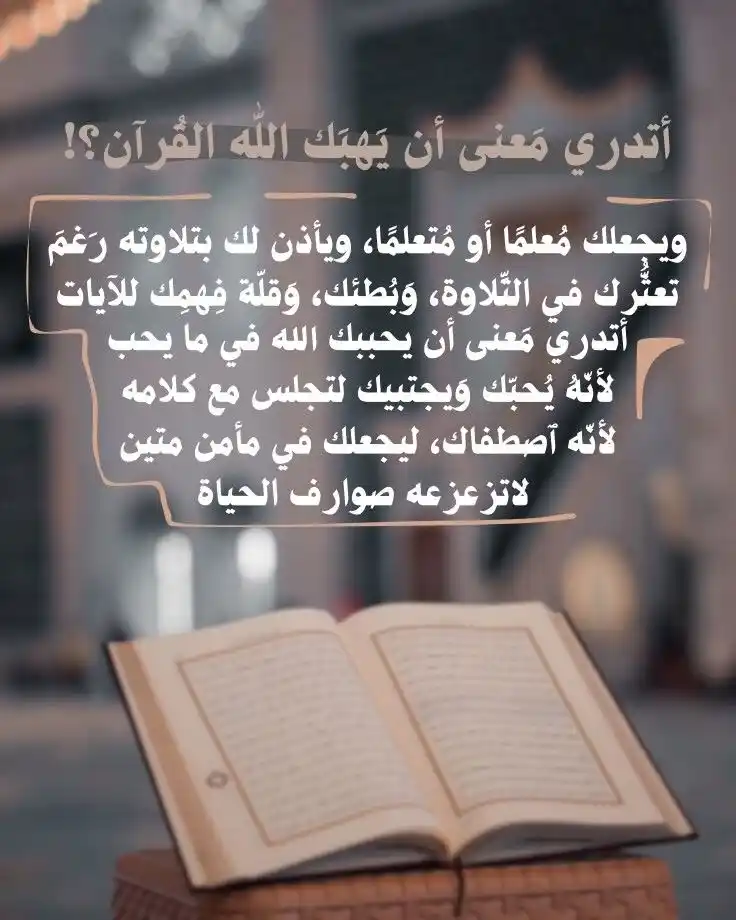 أتدري مَعنى أن يَهبَك الله القُرآن؟!
ويجعلك مُعلمًا أو مُتعلمًا، ويأذن لك بتلاوته رَغمَ
تعثُّرك في التّلاوة، وَبُطئك، وَقلّة فِهمِك للآيات
أتدري مَعنى أن يحببك الله في ما يحب
لأنّهُ يُحبّك وَيجتبيك لتجلس مع كلامه
لأنّه ٱصطفاك، ليجعلك في مأمن متين
لاتزعزعه صوارف الحياة